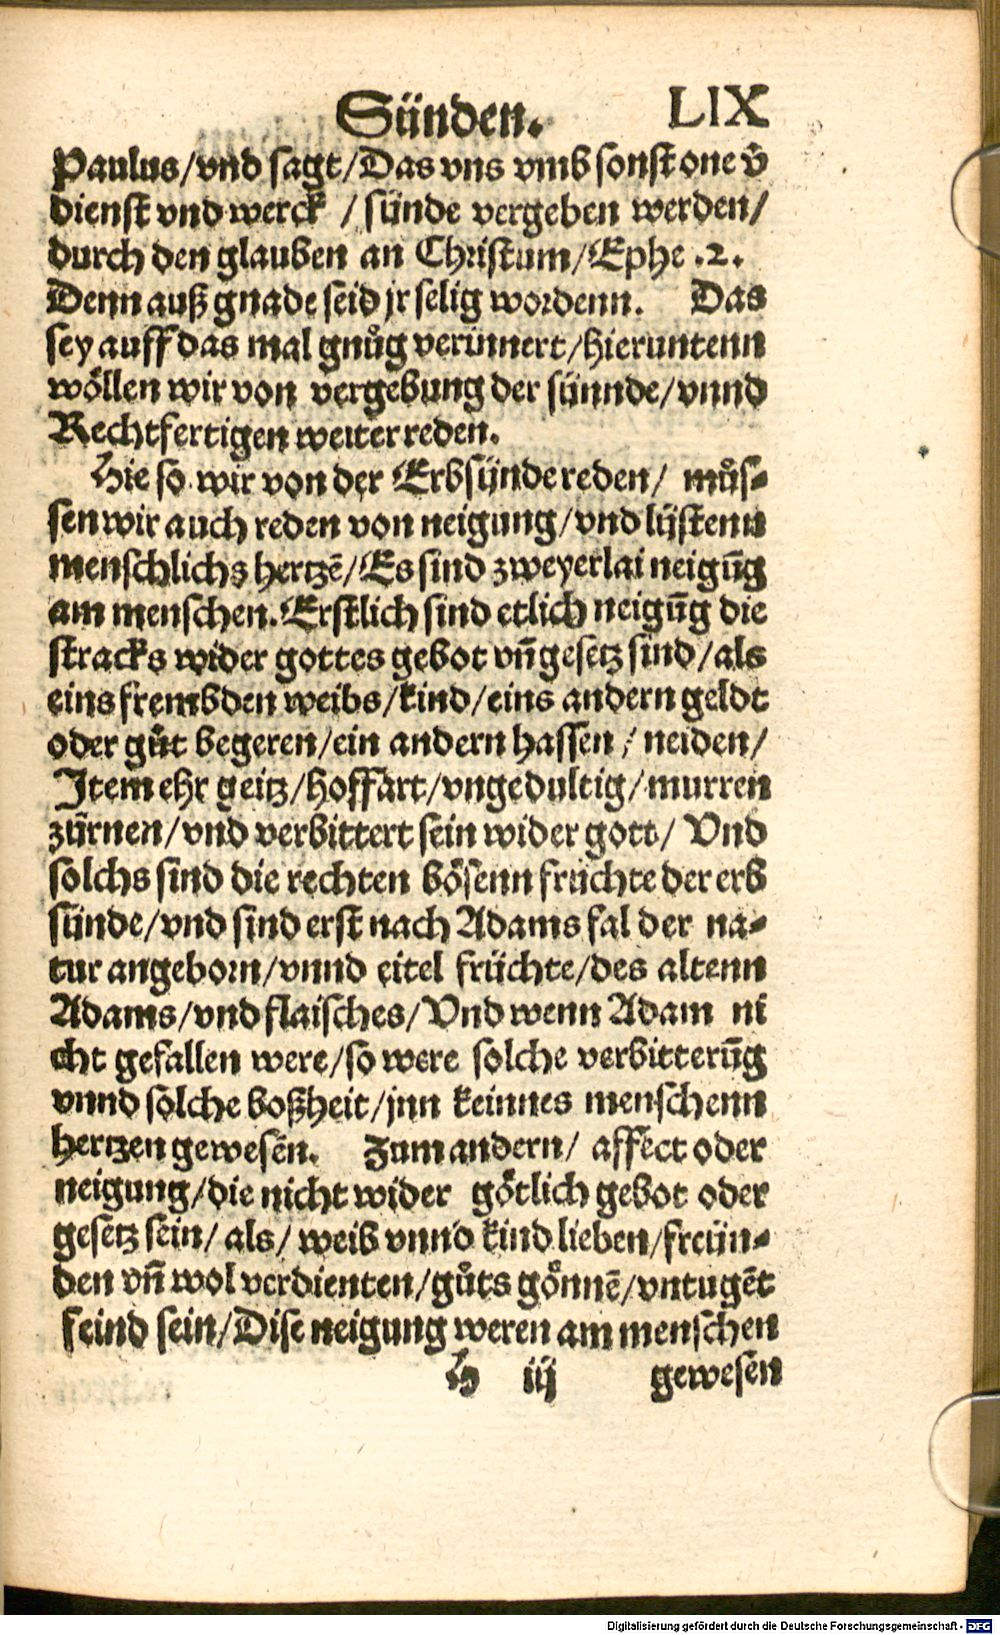 Sünden. LIX
Paulus/vnd sagt/Das vns vmb sonst one v̄
dienst vnd werck / sünde vergeben werden/
durch den glauben an Christum/Ephe .2.
Denn auß gnade seid jr selig wordenn. Das
sey auff das mal gnůg verinnert/hieruntenn
wöllen wir von vergebung der sünnde/vnnd
Rechtfertigen weiter reden.
Hie so wir von der Erbsünde reden/ můs⸗
sen wir auch reden von neigung/vnd lüstenn
menschlichs hertzē/Es sind zweyerlai neigūg
am menschen. Erstlich sind etlich neigūg die
stracks wider gottes gebot vñ gesetz sind/als
eins frembden weibs/kind/eins andern geldt
oder gůt begeren/ein andern hassen/neiden/
Item ehr geitz/hoffart/vngedultig/murren
zürnen/vnd verbittert sein wider gott/ Vnd
solchs sind die rechten bösenn früchte der erb
sünde/vnd sind erst nach Adams fal der na⸗
tur angeborn/vnnd eitel früchte/des altenn
Adams/vnd flaisches/Vnd wenn Adam ni
cht gefallen were/so were solche verbitterūg
vnnd solche boßheit/jnn keinnes menschenn
hertzen gewesen. Zum andern/ affect oder
neigung/die nicht wider götlich gebot oder
gesetz sein/ als/ weib vnnd kind lieben/freün⸗
den vñ wol verdienten/gůts gönnē/vntugēt
feind sein/Dise neigung weren am menschen
H iij gewesen
Digitalisierung gefördert durch die Deutsche Forschungsgemeinschaft - DFG